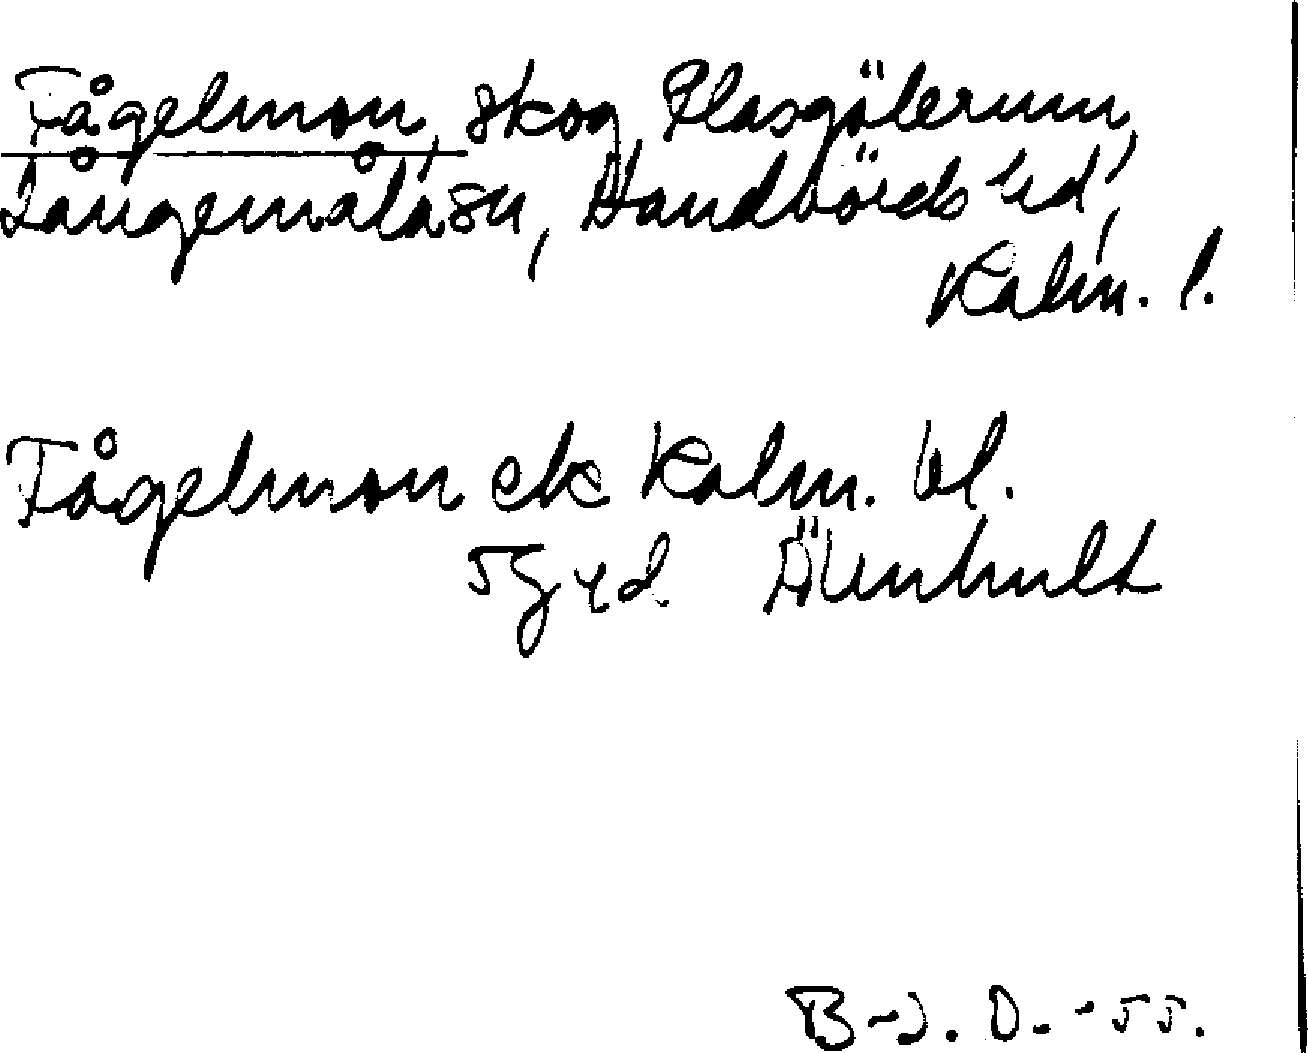 Fågelmon, skog, Plasgölerum,
Långemåla sn, Handbörds hd,
Kalm. l.
Fågelmon ek Kalm. bl.
5 G y d Älenhult
B-J. D. -55.